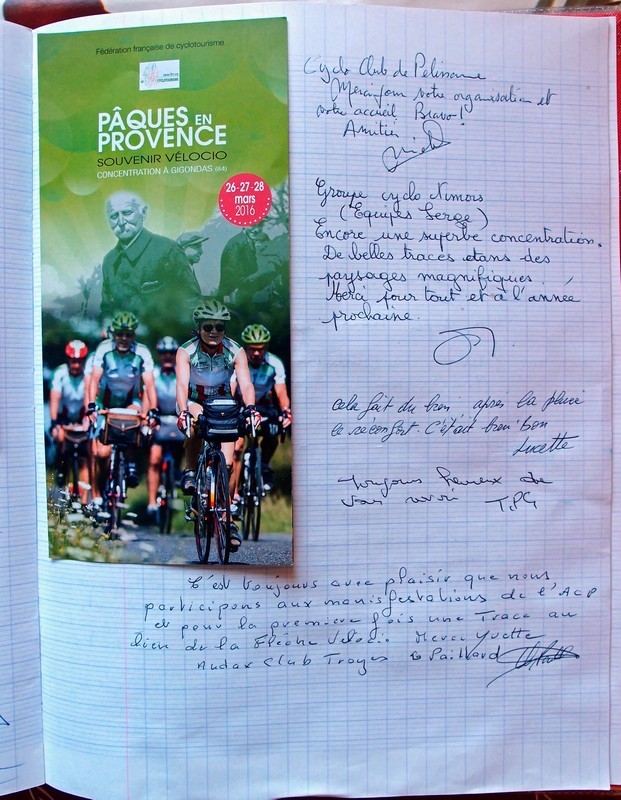 Fédération française de cyclotourisme
PÂQUES EN
PROVENCE
SOUVENIR VÉLOCIO
CONCENTRATION À GIGONDAS (84)
26-27-28
mars
2016
Cyclo Club de Pelissanne
Merci pour votre organisation et
votre accueil Bravo!
Amitiés
Groupe cyclo Nimois
(Equipes Serge)
Encore une superbe concentration.
De belles traces dans des
paysages magnifiques.
Merci pour tout et à l'année
prochaine.
Cela fait du bien après la pluie
le reconfort. C'était bien bon
Lucette
Toujours heureux de
vous revoir T.P.G
C'est toujours avec plaisir que nous,
participons aux manisfestations de l'ACP
et pour la première fois une Trace au
lieu de la Flèche Veloci. Merci Yvette
Audax Club Troyes G Paillard